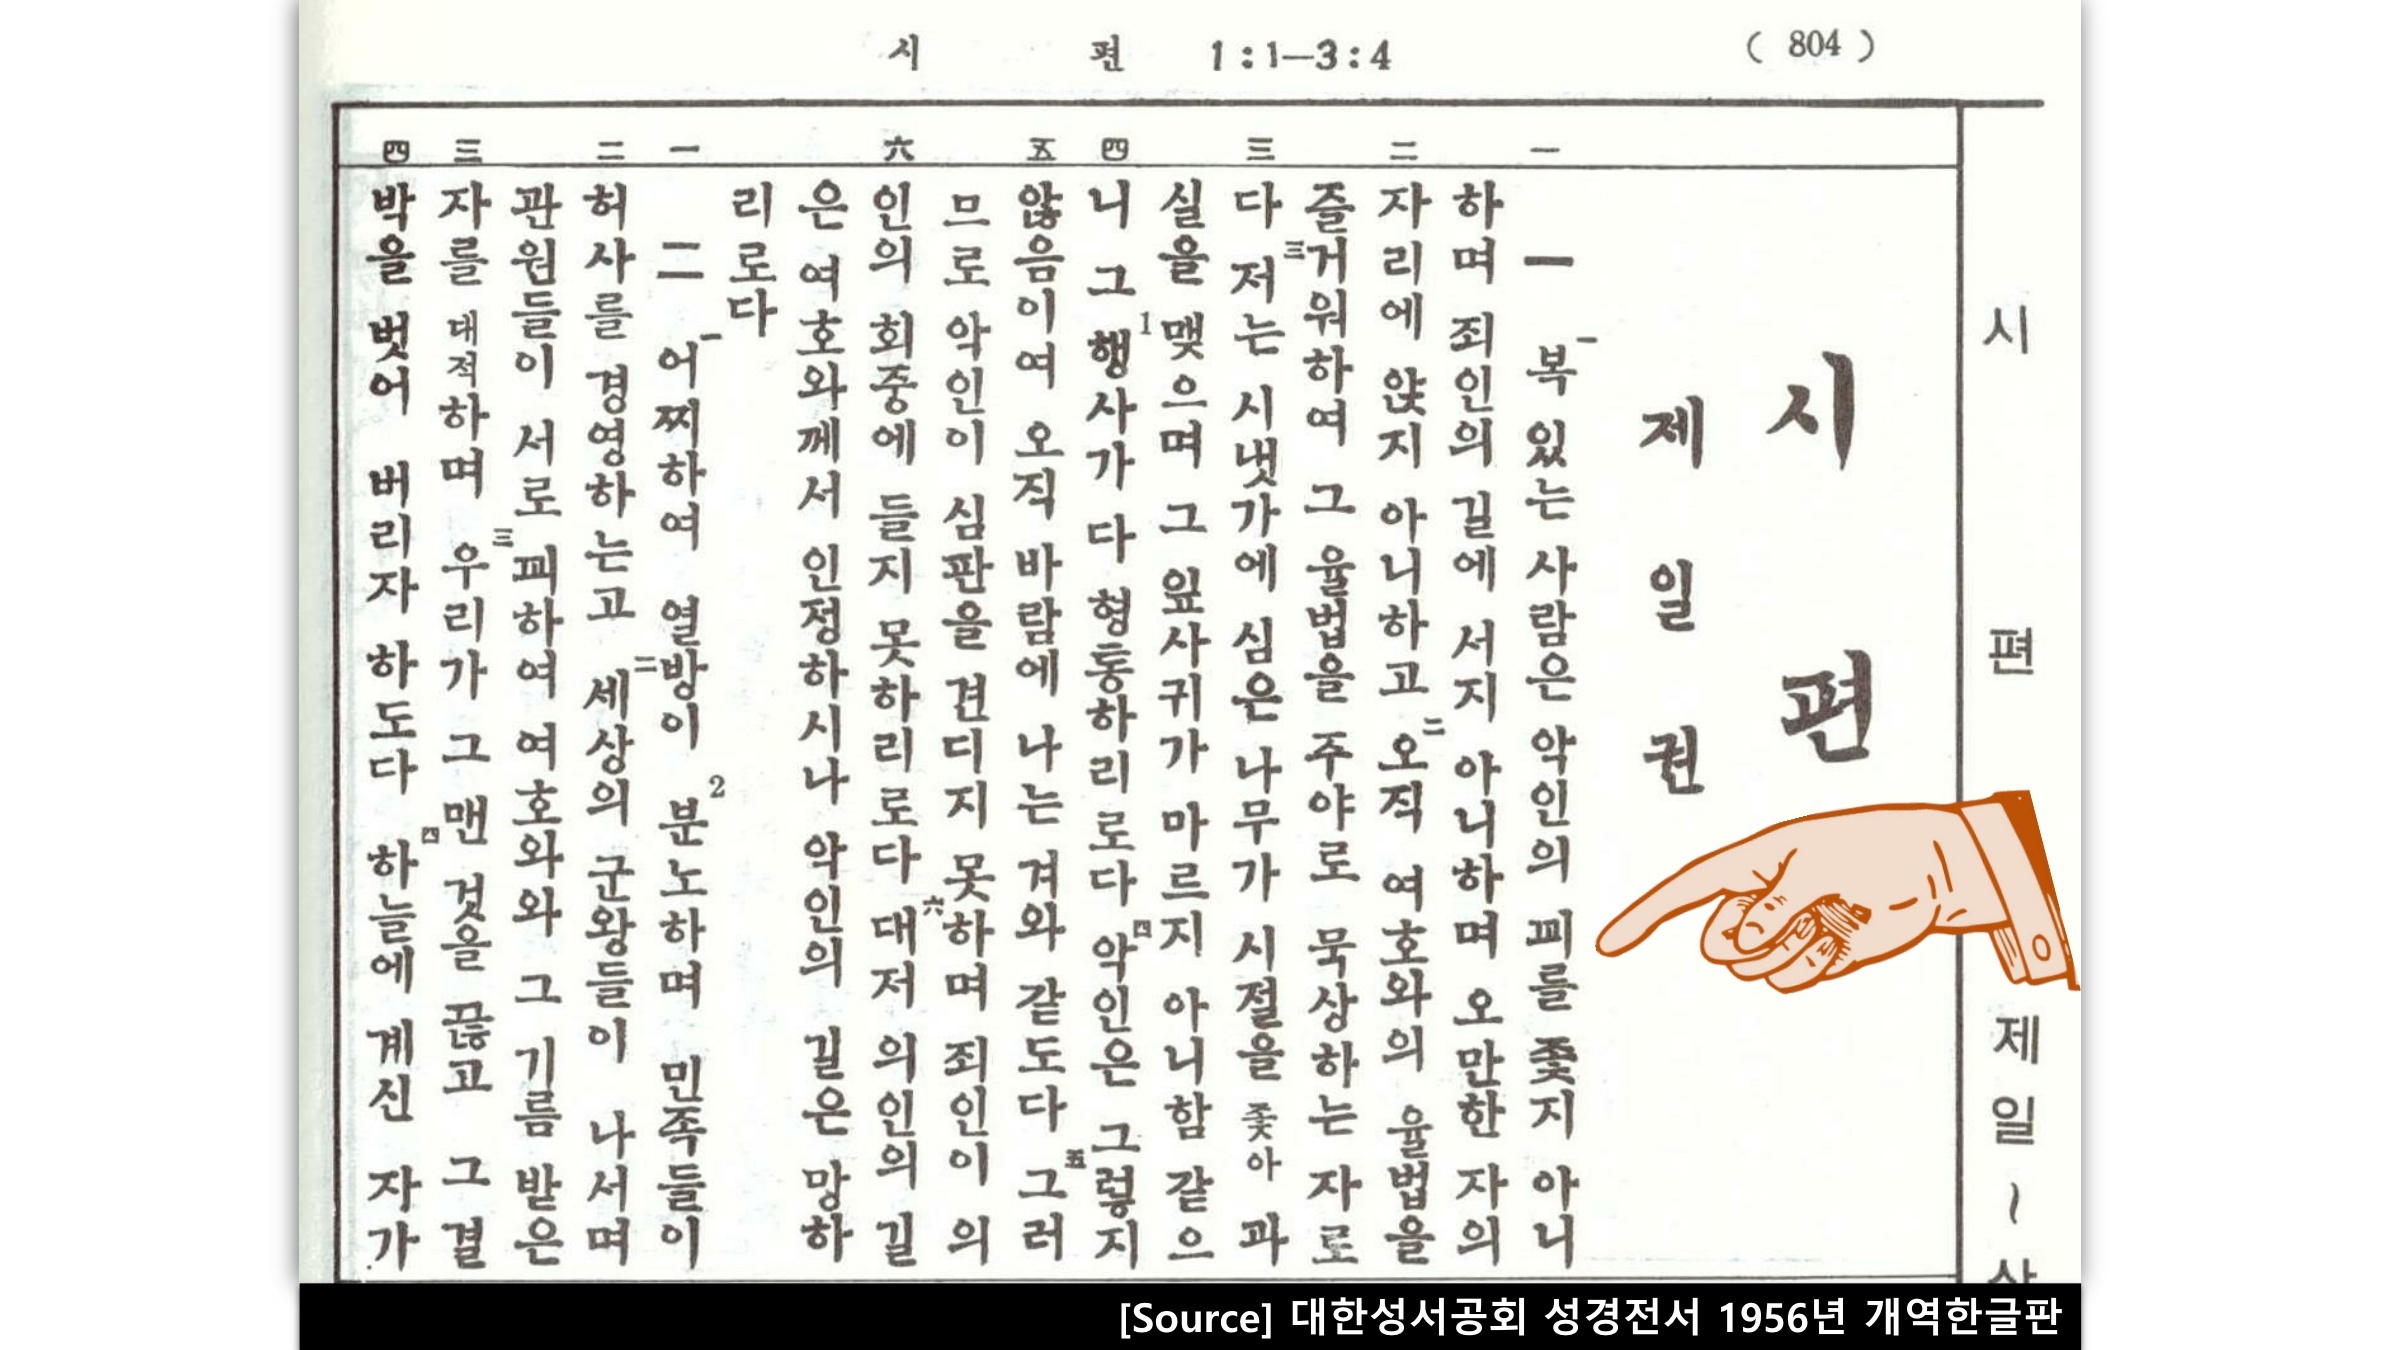 시 편 1:1—3:4 ( 804 )
시 편 제일~
시편
제일권
一 一복 있는 사람은 악인의 꾀를 좇지 아니
하며 죄인의 길에 서지 아니하며 오만한 자의
二 자리에 앉지 아니하고 二오직 여호와의 율법을
즐거워하여 그 율법을 주야로 묵상하는 자로
三 다 三저는 시냇가에 심은 나무가 시절을 좇아 과
실을 맺으며 그 잎사귀가 마르지 아니함 같으
四 니 그 1행사가 다 형통하리로다 四악인은 그렇지
五 않음이여 오직 바람에 나는 겨와 같도다 五그러
므로 악인이 심판을 견디지 못하며 죄인이 의
六 인의 회중에 들지 못하리로다 六대저 의인의 길
은 여호와께서 인정하시나 악인의 길은 망하
리로다
一 二 一어찌하여 열방이 2분노하며 민족들이
二 허사를 경영하는고 二세상의 군왕들이 나서며
관원들이 서로 꾀하여 여호와와 그 기름 받은
三 자를 대적하며 三우리가 그 맨 것을 끊고 그 결
四 박을 벗어 버리자 하도다 四하늘에 계신 자가
[Source] 대한성서공회 성경전서 1956년 개역한글판